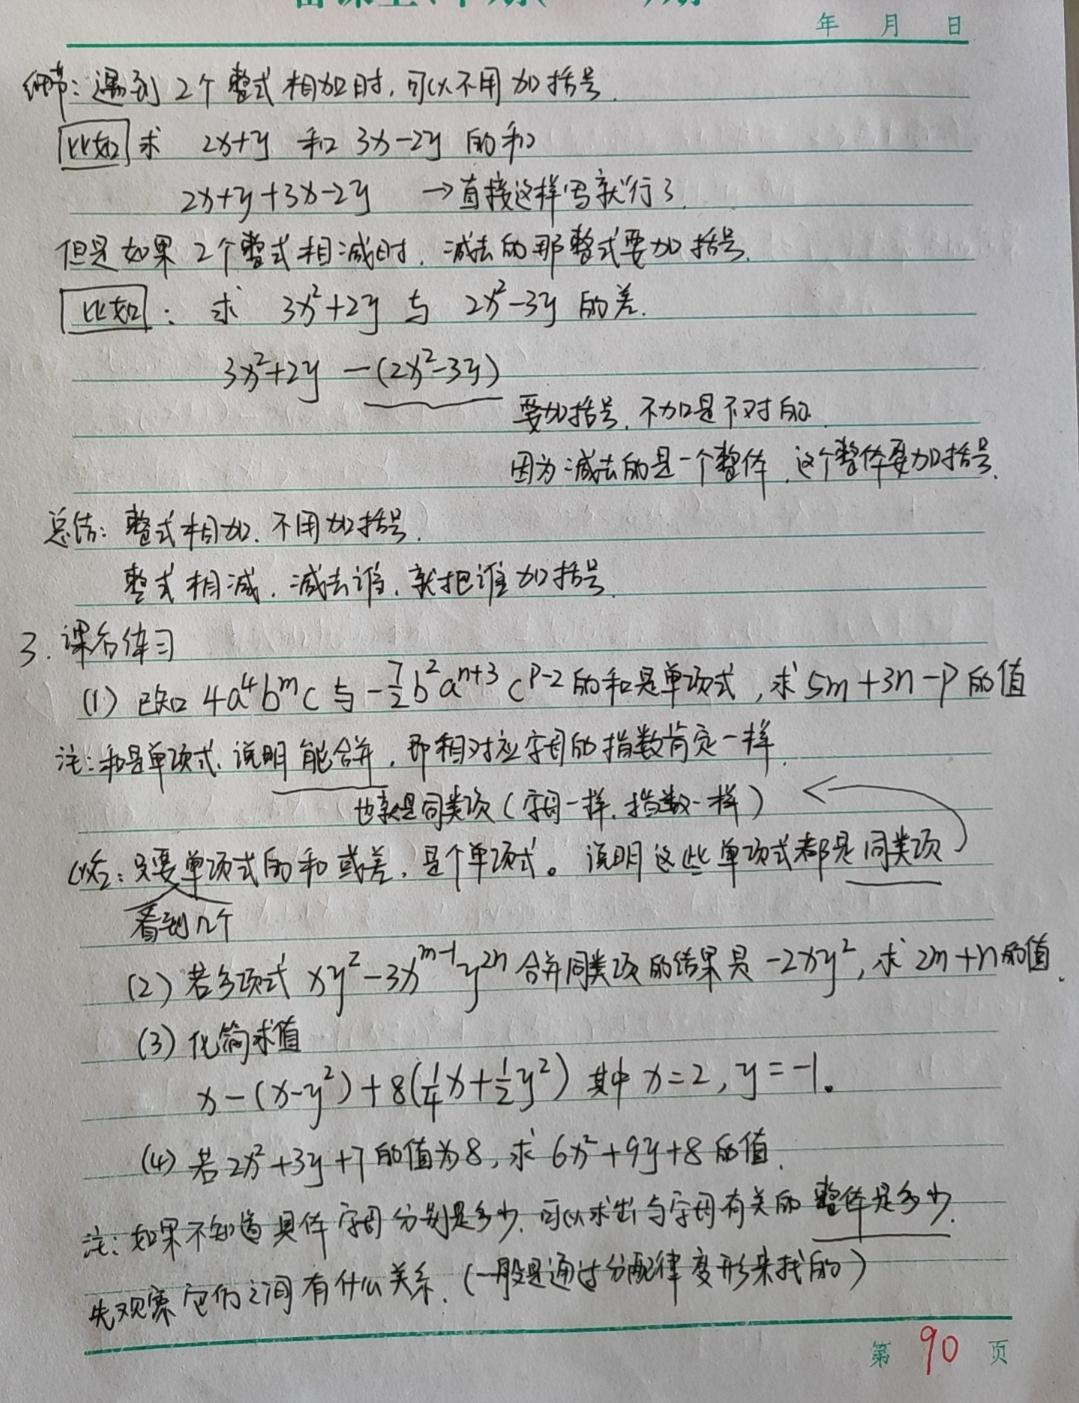 年 月 日
细节：遇到2个整式相加时，可以不用加括号.
比如 求 2x+y 和 3x-2y 的和
2x+y+3x-2y →直接这样写就行了.
但是如果2个整式相减时，减去的那整式要加括号.
比如：求 3x²+2y 与 2x²-3y 的差.
3x²+2y -(2x²-3y)
要加括号，不加是不对的.
因为减去的是一个整体，这个整体要加括号.
总结：整式相加，不用加括号.
整式相减，减去谁，就把谁加括号.
3. 课后练习
(1) 已知 4a⁴bᵐc 与 -7/2 b²aⁿ⁺³ cᵖ⁻² 的和是单项式，求 5m+3n-p 的值
注：和是单项式，说明能合并，那相对应字母的指数肯定一样.
也就是同类项（字母一样，指数一样）
以后：只要单项式的和或差，是个单项式。说明这些单项式都是同类项
看到几个
(2) 若多项式 xy²-3xᵐ⁻¹y²ⁿ 合并同类项的结果是 -2xy²，求 2m+n的值.
(3) 化简求值
x-(x-y²)+8(1/4x+1/2y²) 其中 x=2, y=-1。
(4) 若 2x²+3y+7 的值为8，求 6x²+9y+8 的值.
注：如果不知道具体字母分别是多少，可以求出与字母有关的整体是多少.
先观察它们之间有什么关系.（一般是通过分配律变形来找的）
第 90 页